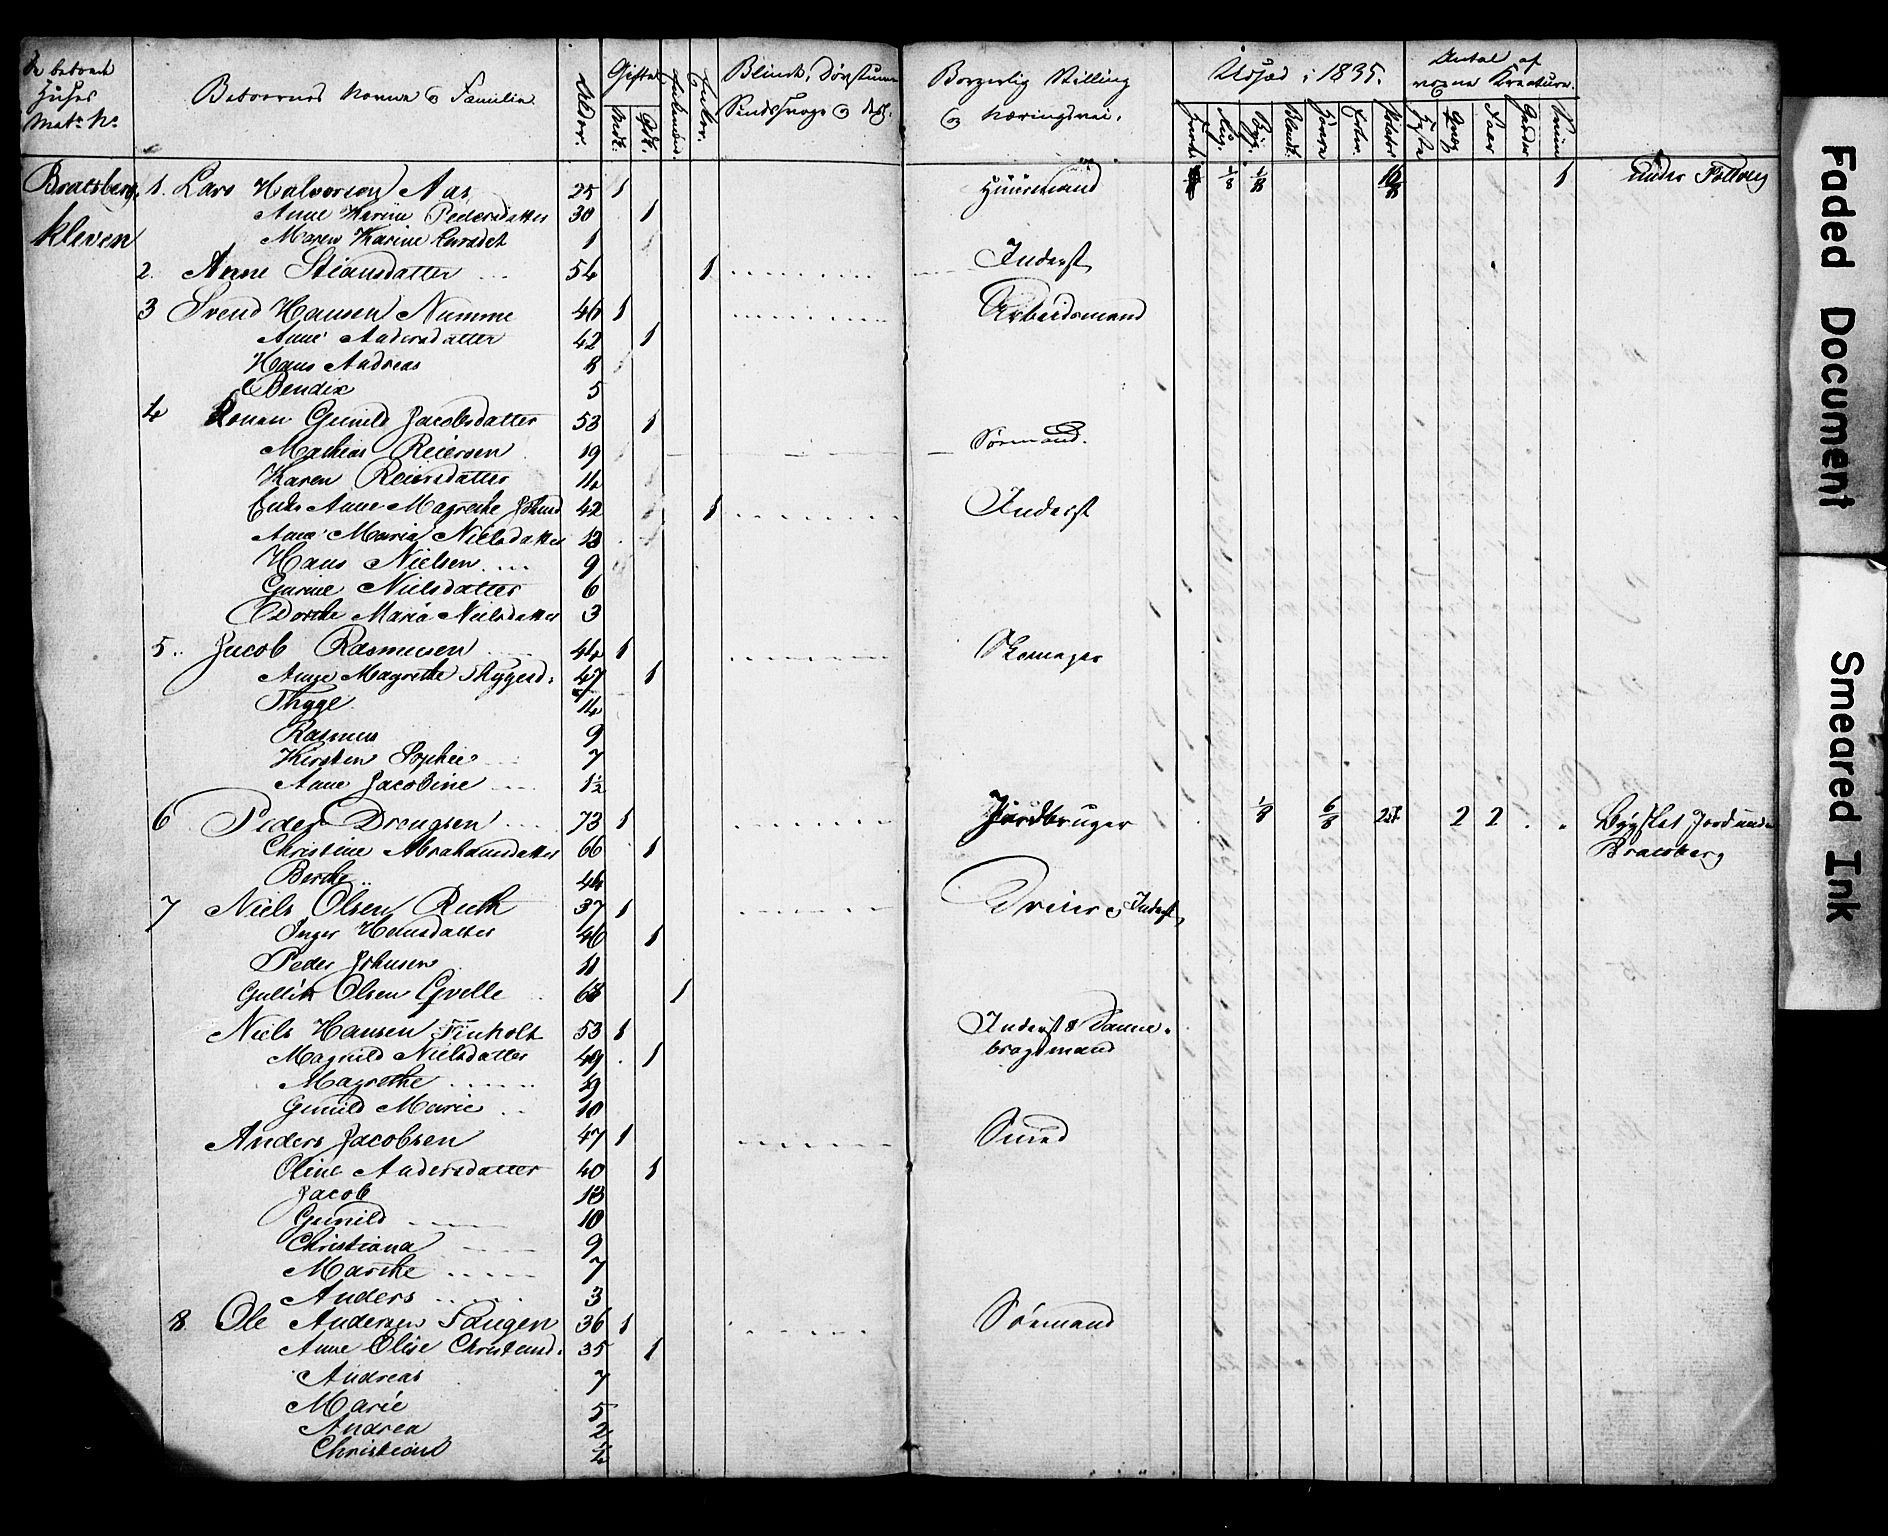 De beboede Huses Mat: No
Beboernes Navne & Familie
Alder.
Gifte
Mdk.
Qdk.
Enker.
Blinde, Døvstumme
Sindssvage & desl.
Borgerlig Stilling
& Næringsvei.
Udsæd i 1835.
Rug.
Byg.
Bland.
Havre
Erter.
Antal af
voxne Kreature.
Heste
Qvæg
Faar
Geder
Sviin
Bratsberg 1. Lars Halvorsen Aas 25 1 Huusmand 1/8 1/8 1 under Follveg
kleven Anne Karine Pedersdatter 30 1
Maren Karine Larsdat 1
2. Anne Stiansdatter 54 1 Inderst
3 Svend Hansen Numme 46 1 Arbeidsmand
Anne Andersdatter 42 1
Hans Andreas 8
Bendix 5
4 Konen Gunild Jacobsdatter 53 1
Mathias Reiersen 19 Sømand.
Karen Reiersdatter 14
Enke Anne Magrethe 42 1 Inderst
Anne Maria Nielsdatter 13
Hans Nielsen 9
Gurine Nielsdatter 6
Dorthe Maria Nielsdatter 3
5. Jacob Rasmusen 44 1 Skomager
Anne Magrethe Thygesd. 47 1
Thyge 14
Rasmus 9
Kirsten Sophie 7
Anne Jacobine 1½
6 Peder Drengsen 73 1 Jordbruger 1/8 6/8 2 2 Bygslet Jord under
Christine Abrahamsdatter 66 1 Bratsberg
Berthe 44
7 Niels Olsen Ruth 37 1 Dreier & Inderst,
Inger Hansdatter 46 1
Peder Johnsen 11
Gullik Olsen Gvelle 68 1
Niels Hansen Finholt 53 1 Inderst & Danne-
Magnild Nielsdatter 49 1 brogsmand
Magrethe 19
Gunild Marie 10
Anders Jacobsen 47 1 Smed
Oline Andersdatter 40 1
Jacob 13
Gunild 10
Christiana 9
Marthe 7
Anders 3
8. Ole Andersen Saugen 36 1 Sømand
Anne Olise Christensd. 35 1
Andreas 7
Marie 5
Andrea 2
Christian ¼
Faded Document
Smeared Ink